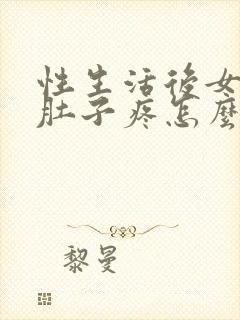 性生活後女
肚子疼怎麼
黎曼